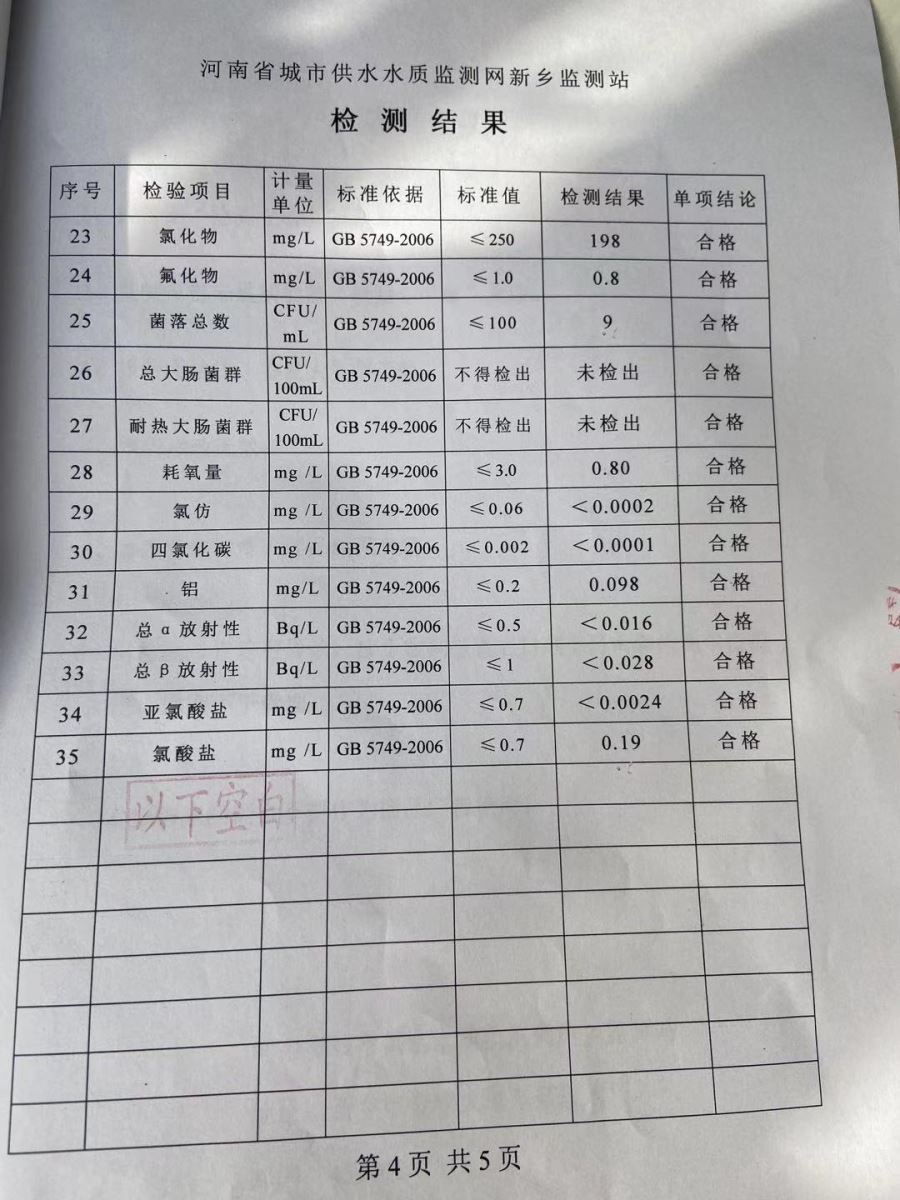 河南省城市供水水质监测网新乡监测站
检测结果
序号 检验项目 计量单位 标准依据 标准值 检测结果 单项结论
23 氯化物 mg/L GB 5749-2006 ≤250 198 合格
24 氟化物 mg/L GB 5749-2006 ≤1.0 0.8 合格
25 菌落总数 CFU/mL GB 5749-2006 ≤100 9 合格
26 总大肠菌群 CFU/100mL GB 5749-2006 不得检出 未检出 合格
27 耐热大肠菌群 CFU/100mL GB 5749-2006 不得检出 未检出 合格
28 耗氧量 mg /L GB 5749-2006 ≤3.0 0.80 合格
29 氯仿 mg /L GB 5749-2006 ≤0.06 <0.0002 合格
30 四氯化碳 mg /L GB 5749-2006 ≤0.002 <0.0001 合格
31 铝 mg/L GB 5749-2006 ≤0.2 0.098 合格
32 总α放射性 Bq/L GB 5749-2006 ≤0.5 <0.016 合格
33 总β放射性 Bq/L GB 5749-2006 ≤1 <0.028 合格
34 亚氯酸盐 mg /L GB 5749-2006 ≤0.7 <0.0024 合格
35 氯酸盐 mg /L GB 5749-2006 ≤0.7 0.19 合格
以下空白
第4页 共5页